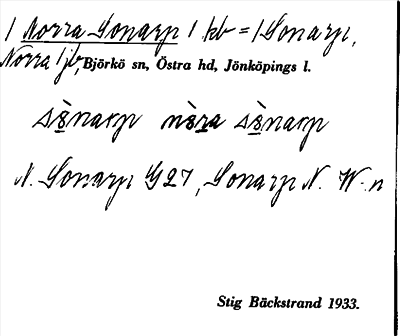 / Norra Sonarp / kb = / Sonarp,
Norra / jb, Björkö sn, Östra hd, Jönköpings l.
sǜnarp nǜra sǜnarp
N. Sonarp G27, Sonarp N. W-n
Stig Bäckstrand 1933.